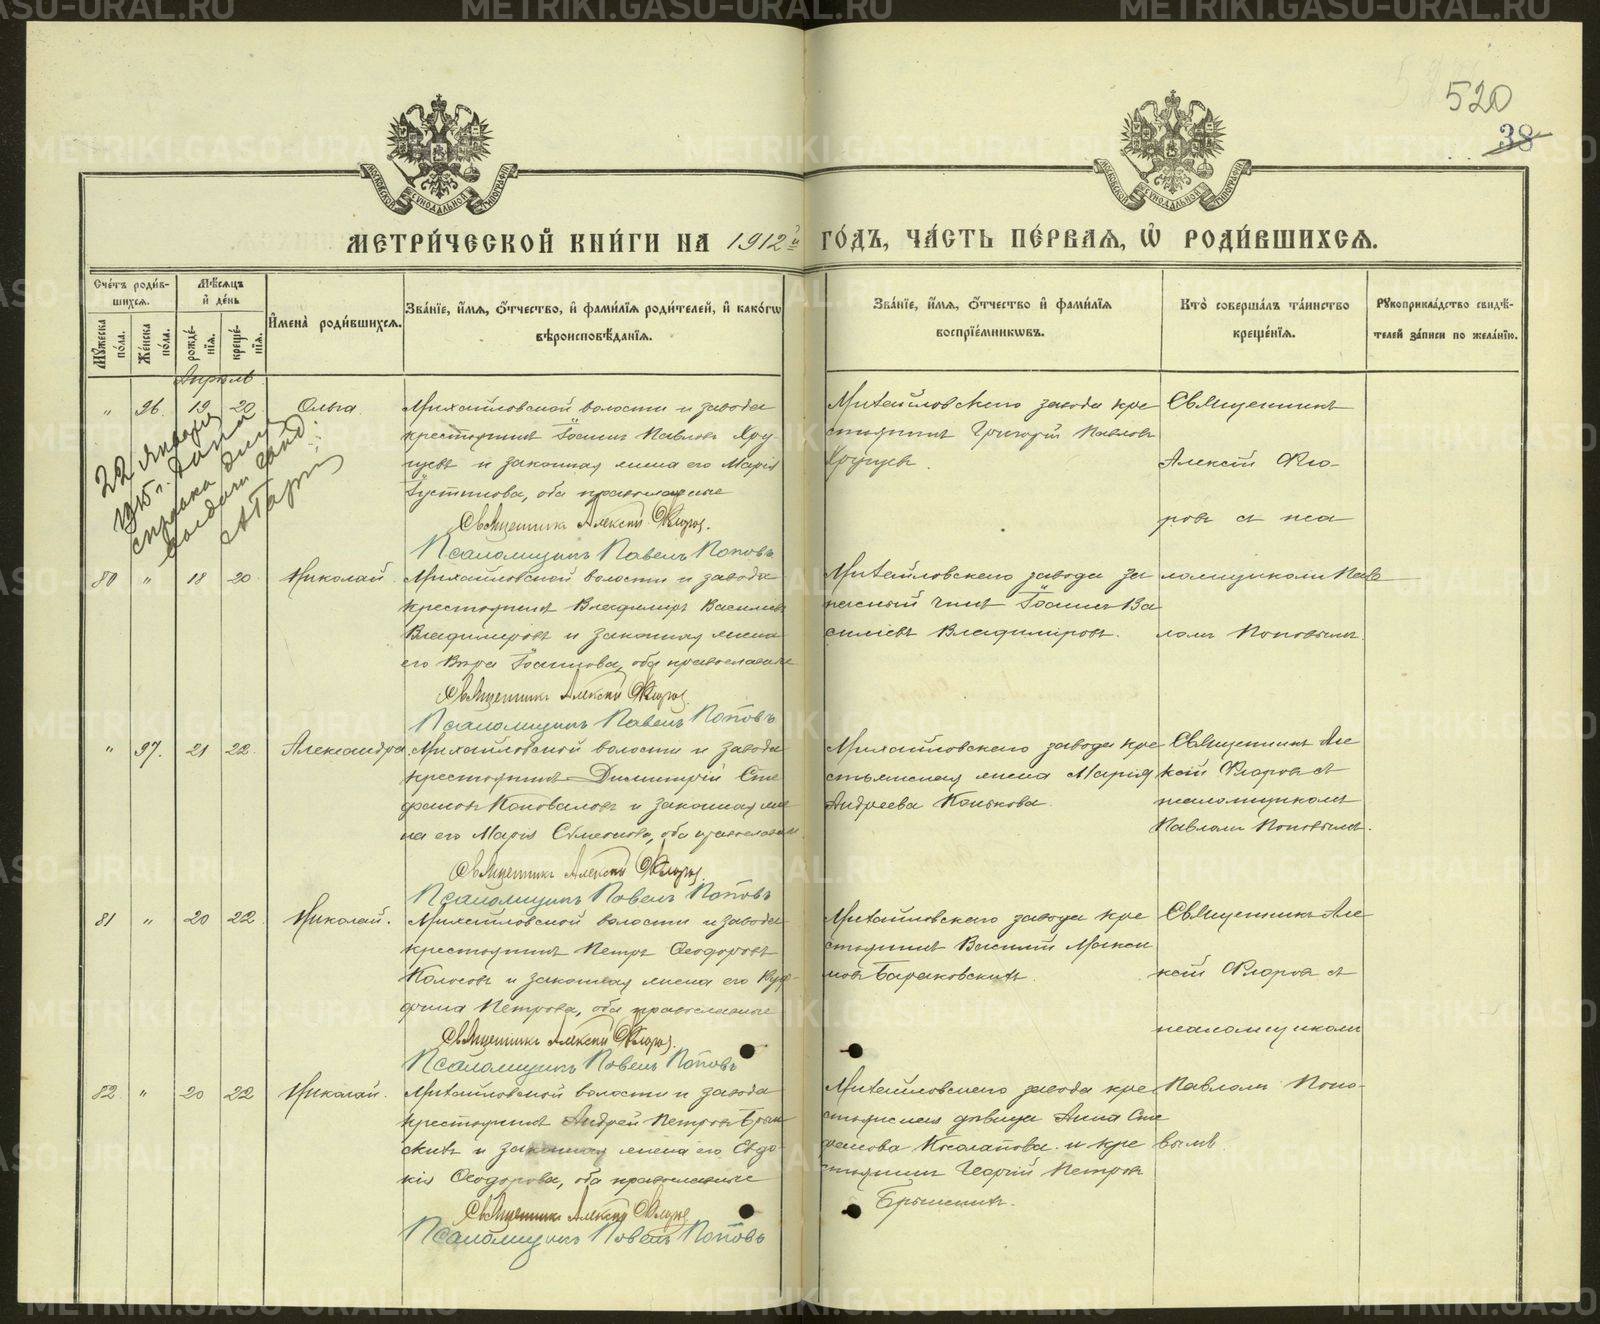 520
38
МЕТРИ́ЧЕСКОЙ КНИ́ГИ НА 1912й ГО́ДЪ, ЧА́СТЬ ПЕ́РВАЯ, Ѡ РОДИ́ВШИХСЯ.
Сче́тъ роди́вшихся.
Мѣ́сяцъ и де́нь
Му́жеска по́ла.
Же́нска по́ла.
рожде́нїя.
креще́нїя.
И҆мена̀ роди́вшихся.
Зва́нїе, и҆́мя, ѻ҆́тчество, и҆ фами́лїя роди́телей, и҆ како́гѡ вѣроисповѣ́данїя.
Зва́нїе, и҆́мя, ѻ҆́тчество и҆ фами́лїя воспрїе́мникѡвъ.
Кто̀ соверша́лъ та́инство креще́нїя.
Рꙋкоприкла́дство свидѣ́телей за́писи по жела́нїю.
Апрѣль
" 96. 19 20. Ольга.
Михайловской волости и завода
крестьянинъ Іоаннъ Павловъ Хру-
щевъ и законная жена его Марія
Іустинова, оба православные
Священникъ Алексѣй Флоровъ.
Псаломщикъ Павелъ Поповъ
Михайловскаго завода кре
стьянинъ Григорій Павловъ
Хрущевъ.
Священникъ
Алексѣй Фло-
ровъ съ пса
ломщикомъ Пав
ломъ Поповымъ.
22 января
1915 г. дана
справка
80 " 18 20 Николай.
Михайловской волости и завода
крестьянинъ Владимиръ Васильевъ
Владимировъ и законная жена
его Вѣра Іоаннова, оба православные
Священникъ Алексѣй Флоровъ.
Псаломщикъ Павелъ Поповъ
Михайловскаго завода за
пасный чинъ Іоаннъ Ва
сильевъ Владиміровъ.
" 97. 21 22. Александра.
Михайловской волости и завода
крестьянинъ Димитрій Сте
фановъ Коновалова и законная же
на его Марія Сѵмеонова, оба православные
Священникъ Алексѣй Флоровъ.
Псаломщикъ Павелъ Поповъ
Михайловскаго завода кре
стьянская жена Марія
Андреева Конькова.
Священникъ Але
ксѣй Флоровъ съ
псаломщикомъ
Павломъ Поповымъ.
81 " 20 22. Николай.
Михайловской волости и завода
крестьянинъ Петръ Ѳеодоровъ
Колосовъ и законная жена его Руф-
фина Петрова, оба православные
Священникъ Алексѣй Флоровъ.
Псаломщикъ Павелъ Поповъ
Михайловскаго завода кре
стьянинъ Василій Макси
мовъ Барановскихъ.
Священникъ Але
ксѣй Флоровъ съ
псаломщикомъ
Павломъ Попо-
вымъ
82. " 20 22 Николай.
Михайловской волости и завода
крестьянинъ Андрей Петровъ Брын
скихъ и законная жена его Евдо
кія Ѳеодорова, оба православные
Священникъ Алексѣй Флоровъ
Псаломщикъ Павелъ Поповъ
Михайловскаго завода кре
стьянская дѣвица Анна Сте
фанова Косолапова и кре
стьянинъ Георгій Петровъ